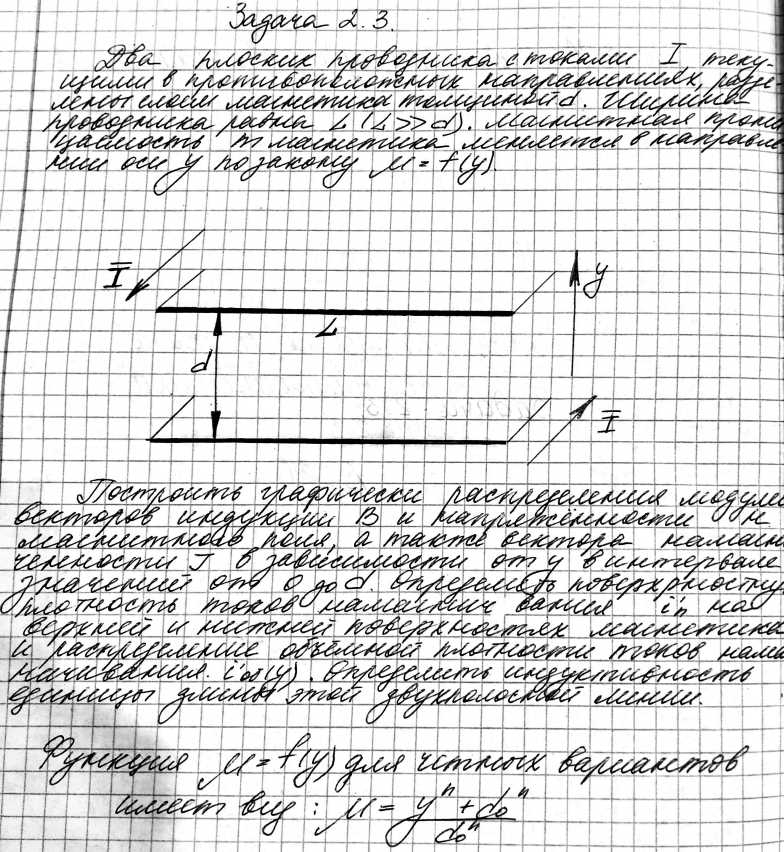 Задача 2.3.
Два плоских проводника с токами I, теку-
щими в противоположных направлениях, разде-
лены слоем магнетика толщиной d. Ширина
проводника равна L (L>>d). Магнитная прони
цаемость магнетика меняется в направле
нии оси y по закону μ = f(y).
I
y
L
d
I
Построить графически распределения модулей
векторов индукции B и напряжённости H
магнитного поля, а также вектора намагни
ченности J в зависимости от y в интервале
значений от 0 до d. Определить поверхностную
плотность токов намагничивания i'п на
верхней и нижней поверхностях магнетика
и распределение объёмной плотности токов намаг
ничивания i'об(y). Определить индуктивность
единицы длины этой двухполосной линии.
Функция μ = f(y) для четных вариантов
имеет вид: μ = (y^n + d₀^n) / d₀^n